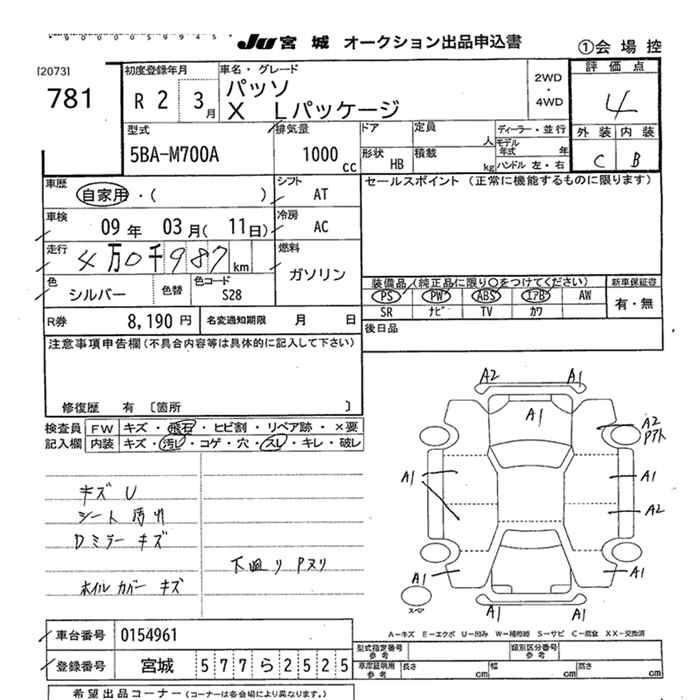 JU 宮城 オークション出品申込書
①会場控
[2073]
781
初度登録年月
R 2 3月
車名・グレード
パッソ
X Lパッケージ
2WD
・
4WD
評価点
4
外装 内装
C B
型式
5BA-M700A
排気量
1000 cc
ドア
定員 人
形状 HB
積載 kg
ディーラー・並行
モデル年式 年
ハンドル 左・右
車歴
自家用・( )
シフト
AT
セールスポイント (正常に機能するものに限ります)
車検
09年 03月(11日)
冷房
AC
走行
4万0千987km
燃料
ガソリン
色
シルバー
色替
色コード
S28
装備品(純正品に限り○をつけてください)
新車保証書
PS PW ABS エアB AW
SR ナビ TV カワ
有・無
R券
8,190円
名変通知期限 月 日
後日品
注意事項申告欄(不具合内容等は具体的に記入して下さい)
修復歴 有 〔箇所 〕
検査員 FW キズ・飛石・ヒビ割・リペア跡・×要
記入欄 内装 キズ・汚レ・コゲ・穴・スレ・キレ・破レ
キズU
シート汚レ
Dミラーキズ
ホイルカバーキズ
下廻りPヌリ
A2 A1
A1
A2
Pアト
A1 A1
A2
A1 A1
A1 A1
スペア
A−キズ E−エクボ U−凹み W−補修跡 S−サビ C−腐食 XX−交換済
車台番号 0154961
登録番号 宮城 577ら2525
型式指定番号
参考
類別区分番号
参考
車庫証明用
参考
長さ cm 幅 cm 高さ cm
希望出品コーナー(コーナーは各会場により異なります。)